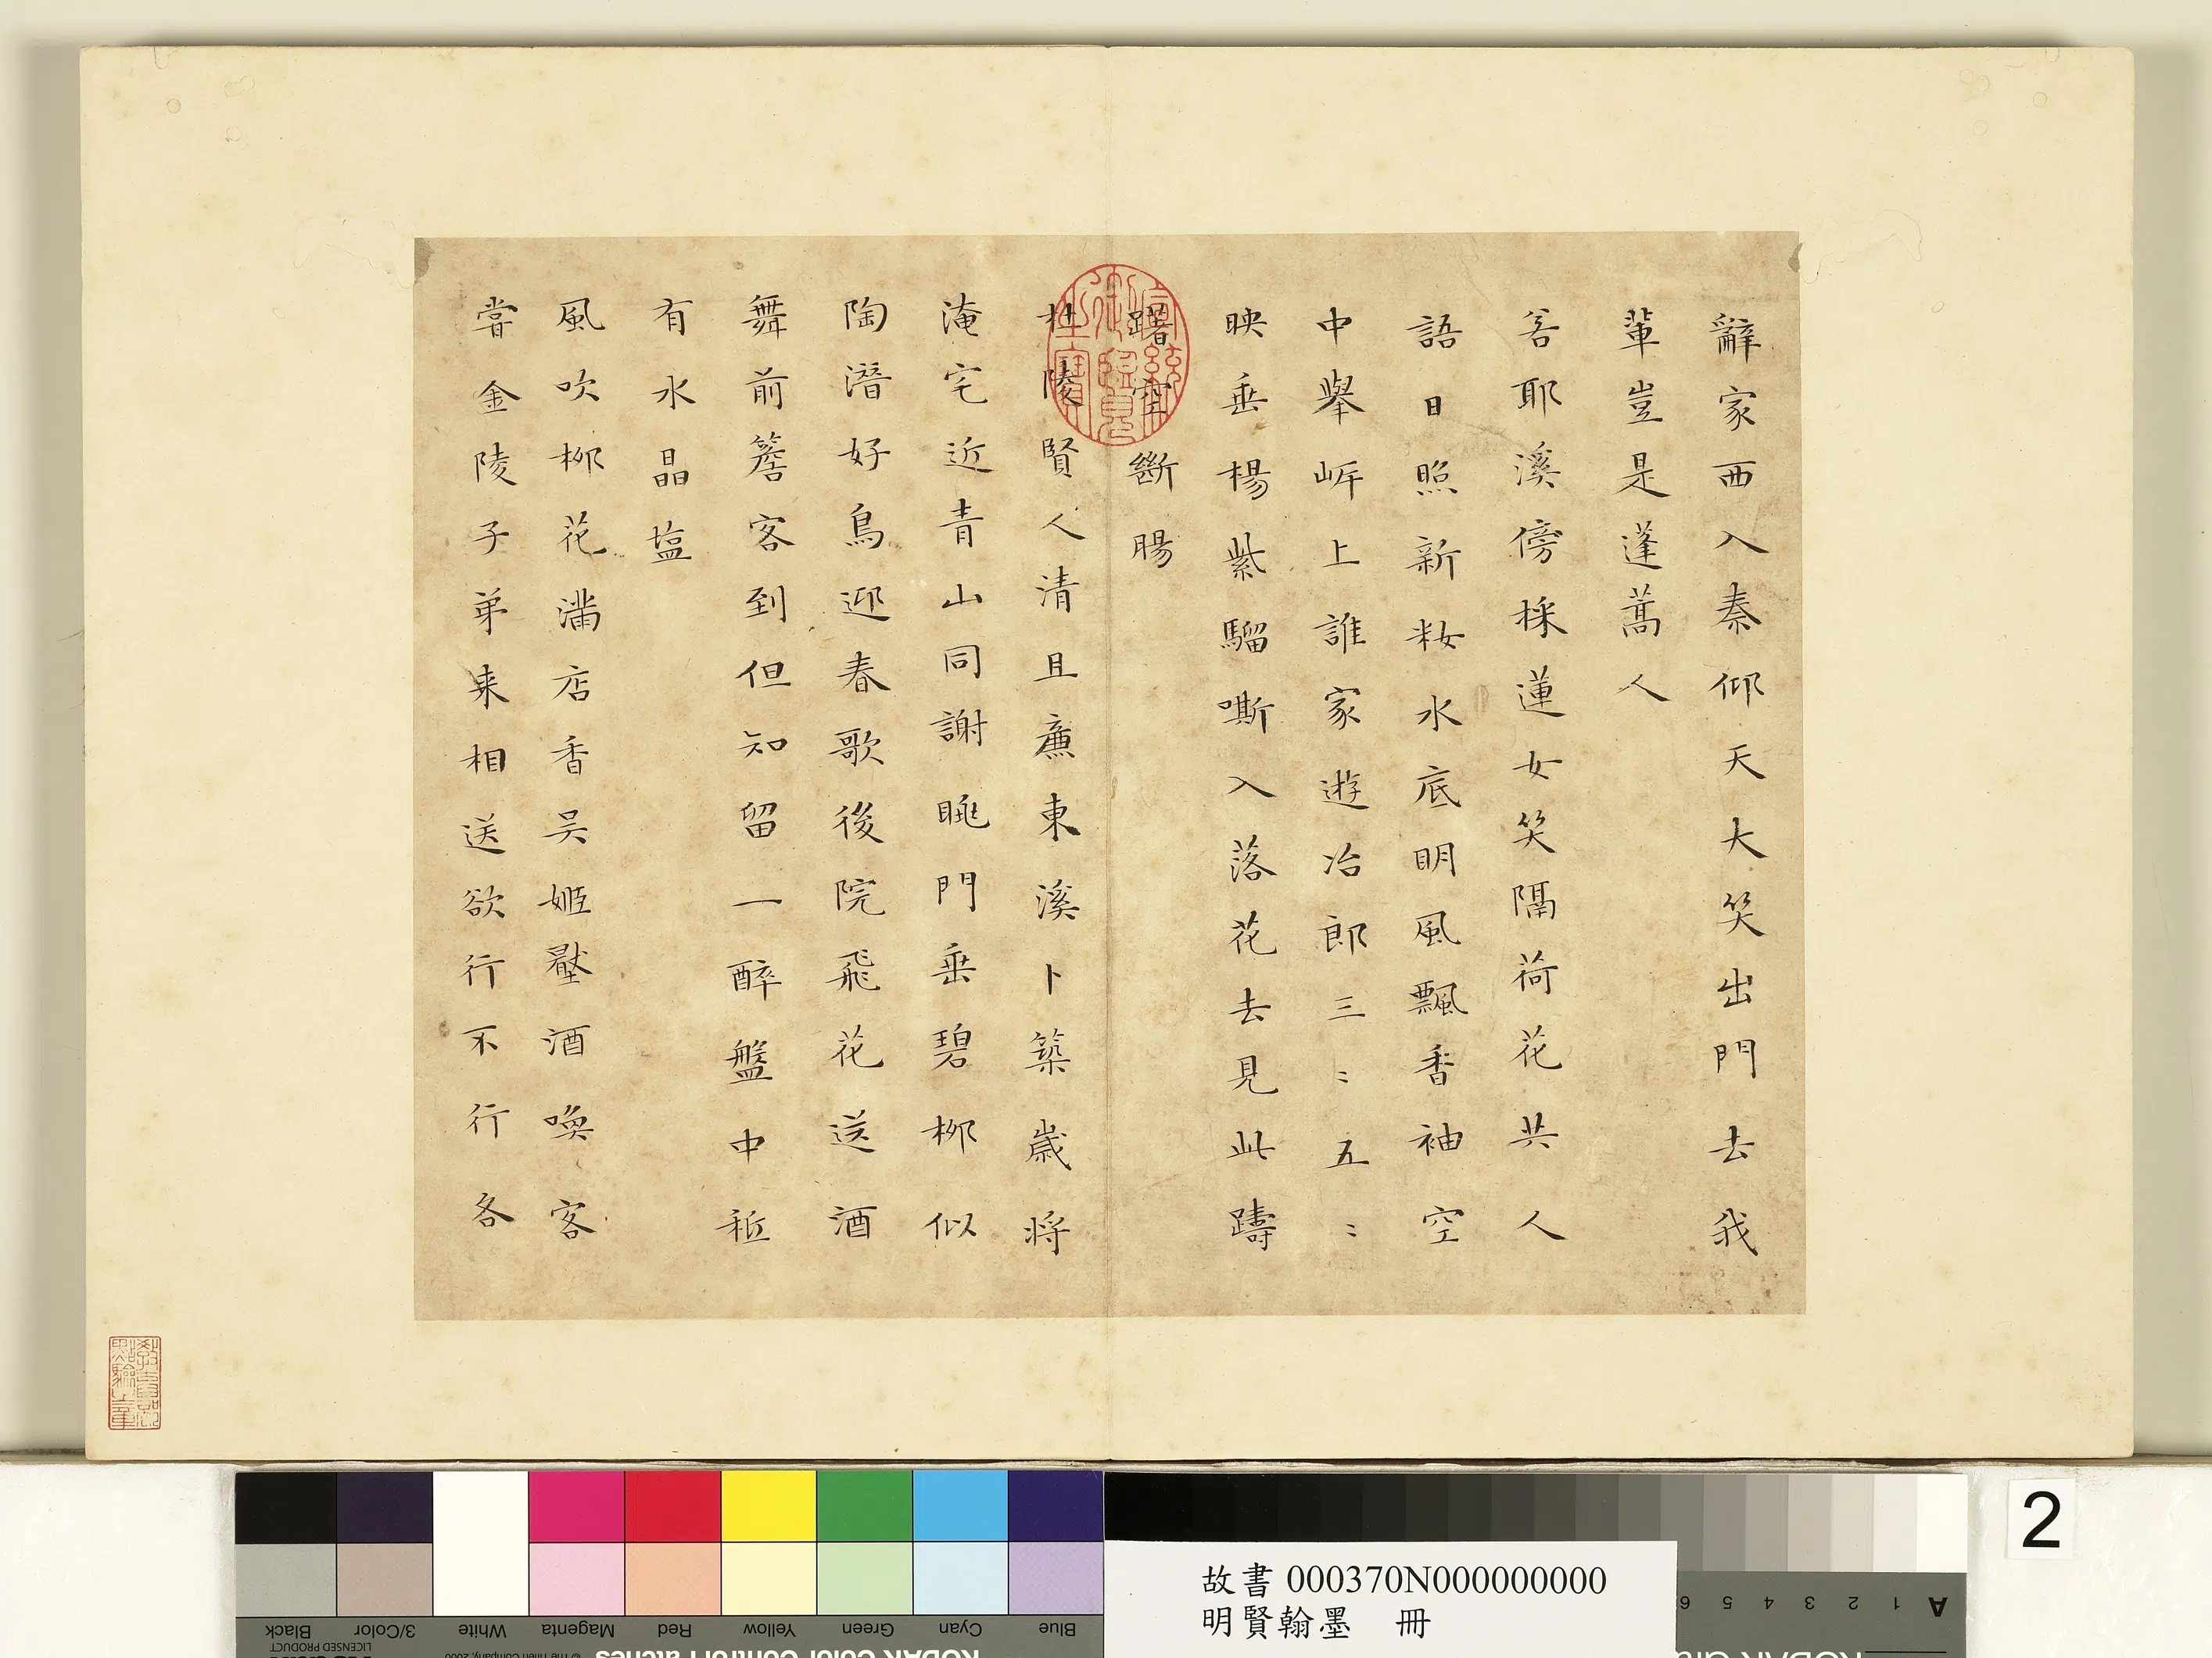 辭家西入秦仰天大笑出門去我
輩豈是蓬蒿人
若耶溪傍採蓮女笑隔荷花共人
語日照新粧水底明風飄香袖空
中舉岸上誰家遊冶郎三〻五〻
映垂楊紫騮嘶入落花去見此躊
躇空斷腸
杜陵賢人清且廉東溪卜築歲將
淹宅近青山同謝眺門垂碧柳似
陶潛好鳥迎春歌後院飛花送酒
舞前簷客到但知留一醉盤中秪
有水晶塩
風吹柳花滿店香吴姬壓酒喚客
嘗金陵子弟来相送欲行不行各
宣統御覽之寶
教育部點驗之章
2
故書 000370N000000000
明賢翰墨 冊
Blue Cyan Green Yellow Red Magenta White 3/Color Black
LICENSED PRODUCT
© The Tiffen Company, 2000
KODAK Color Control Patches
A 1 2 3 4 5 6